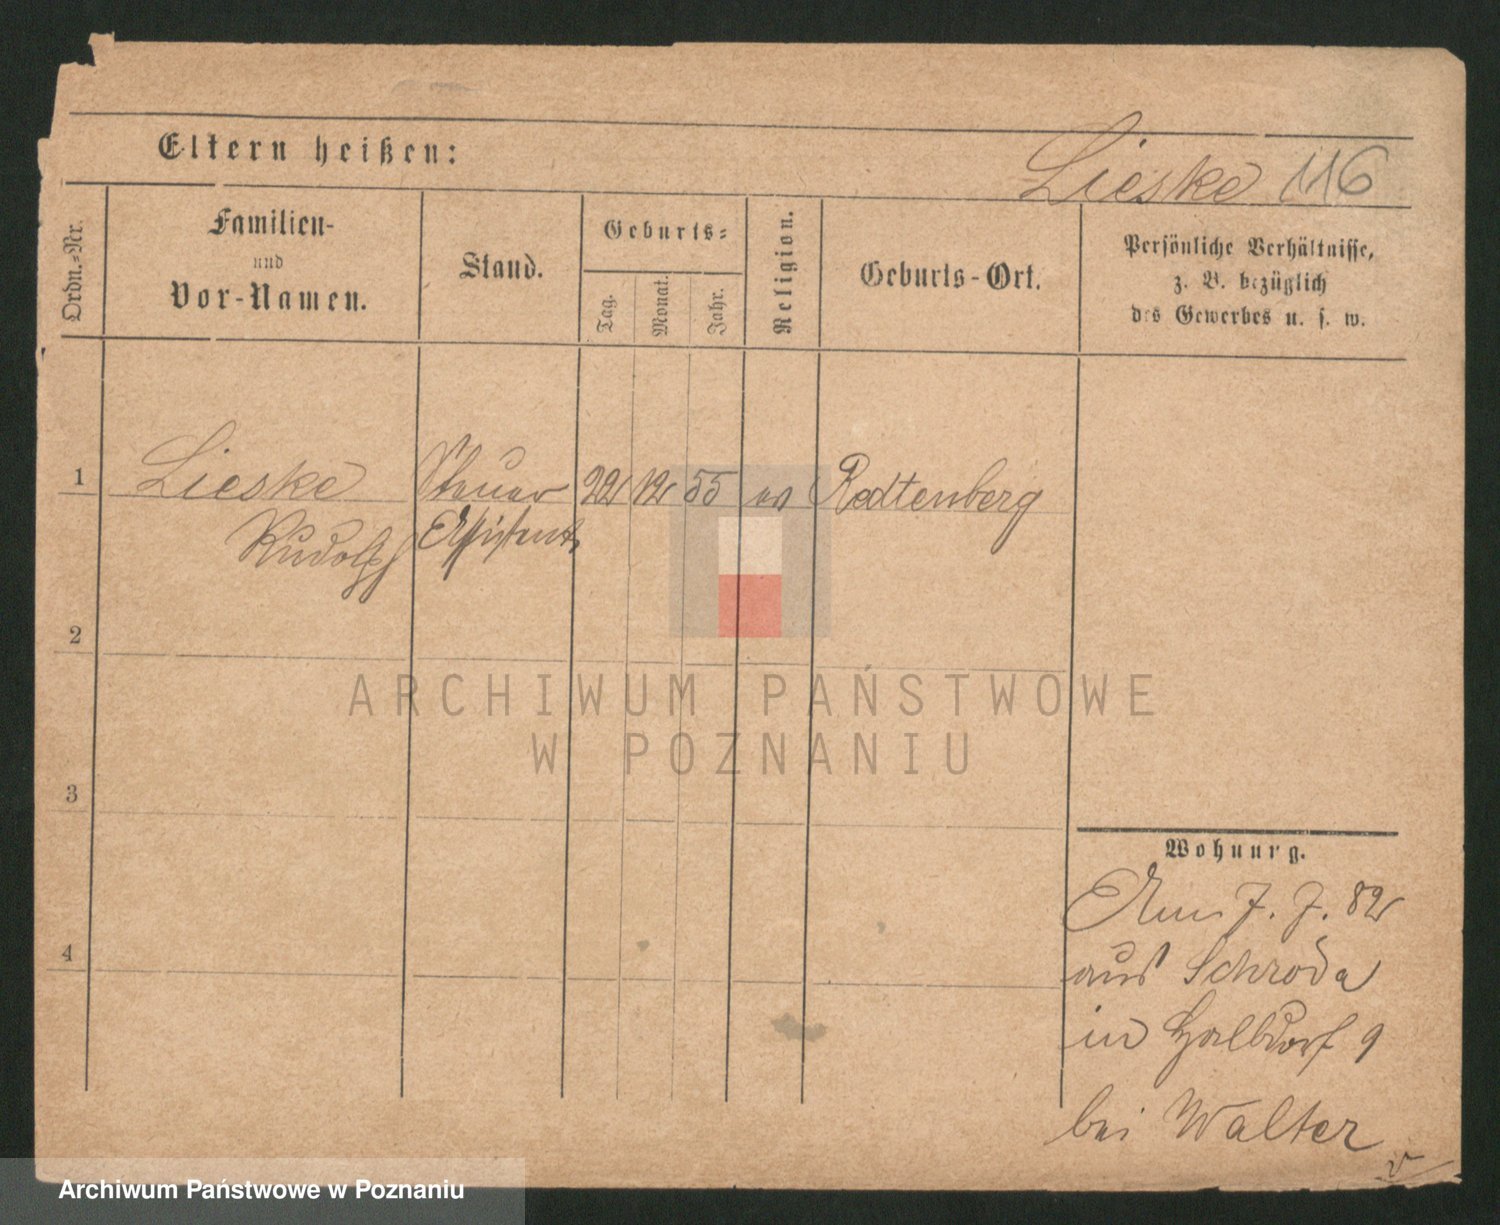 Eltern heißen:
Lieske 116
Ordn.-Nr.
Familien-
und
Vor-Namen.
Stand.
Geburts-
Tag.
Monat.
Jahr.
Religion.
Geburts-Ort.
Persönliche Verhältnisse,
z. B. bezüglich
des Gewerbes u. s. w.
1
Lieske
Rudolph
Steuer
Assistent
22
12
55
ev
Redtenberg
2
3
4
Wohnung.
7. 7. 82
aus Schroda
in Halbdorf 9
bei Walter
ARCHIWUM PAŃSTWOWE
W POZNANIU
Archiwum Państwowe w Poznaniu